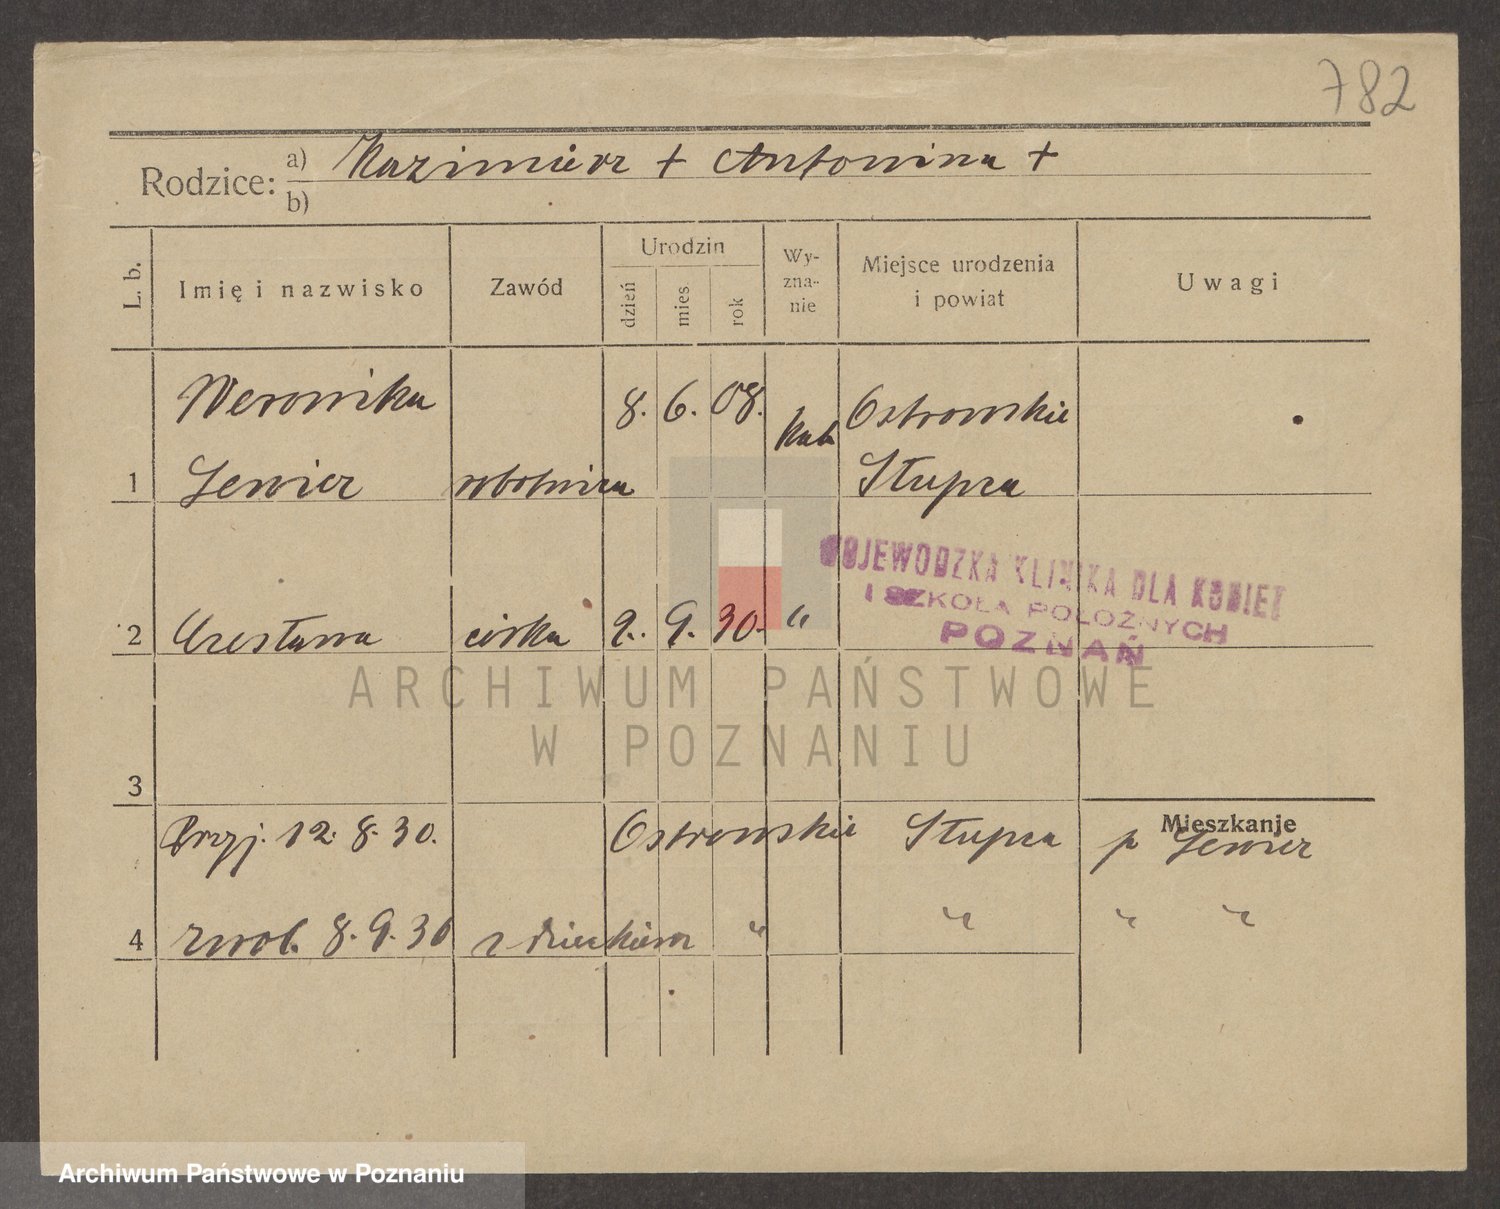 782
Rodzice: a) Kazimierz + Antonina +
b)
L. b. Imię i nazwisko Zawód Urodzin dzień mies rok Wy-zna-nie Miejsce urodzenia i powiat Uwagi
Weronika 8. 6. 08. kat Ostrowskie
1 robotnica Słupca
WOJEWODZKA KLINIKA DLA KOBIET
I SZKOŁA POŁOŻNYCH
POZNAŃ
2 Czesława córka 2. 9. 30. "
ARCHIWUM PAŃSTWOWE
W POZNANIU
3
Mieszkanie
Przyj. 12. 8. 30. Ostrowskie Słupca p
4 zwol. 8. 9. 30 z dzieckiem " " " "
Archiwum Państwowe w Poznaniu